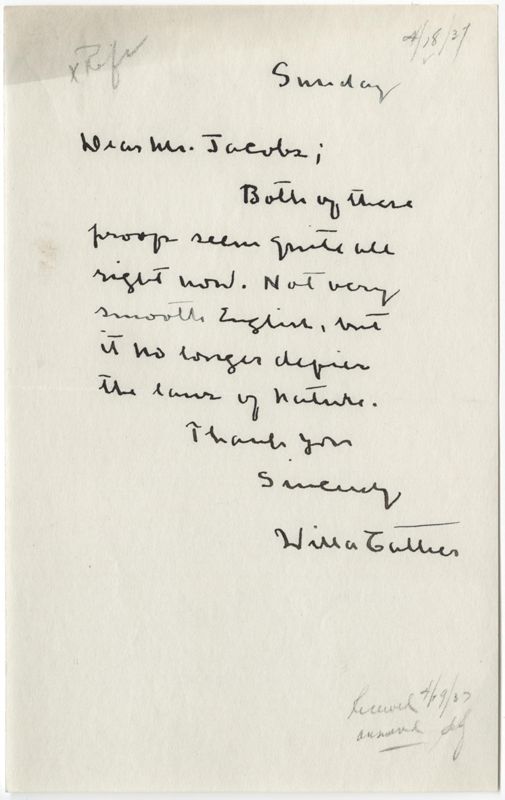 4/18/37
x Ref
Sunday
Dear Mr. Jacobs;
Both of these
proofs seem quite all
right now. Not very
smooth English, but
it no longer defies
the laws of nature.
Thank you
Sincerely
Willa Cather
Received 4/19/37
answered